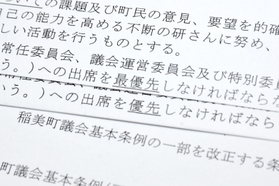 ての課題及び町民の意見、要望を的確
自己の能力を高める不断の研さんに努め、
しい活動を行うものとする。
常任委員会、議会運営委員会及び特別委
う。)への出席を最優先しなければなら
いう。)への出席を優先しなければなら
稲美町議会基本条例の一部を改正する条
町議会基本条例